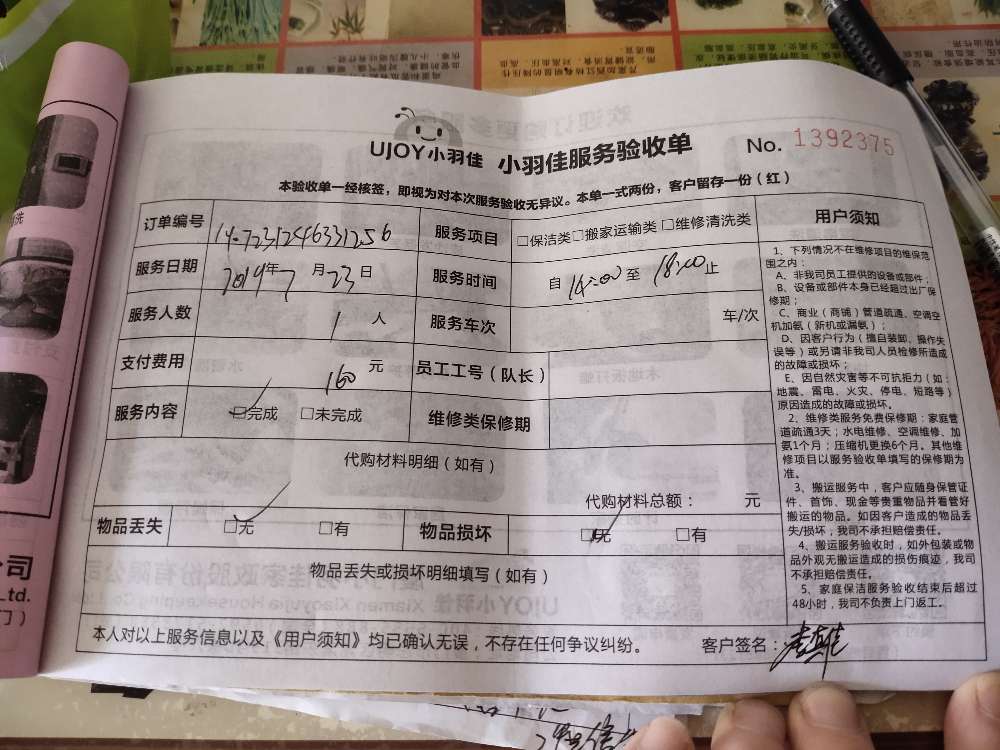 UJOY小羽佳 小羽佳服务验收单 No. 1392375
本验收单一经核签，即视为对本次服务验收无异议。本单一式两份，客户留存一份（红）
订单编号 服务项目 □保洁类□搬家运输类□维修清洗类
服务日期 2019年7月23日 服务时间 自14:00至18:00止
服务人数 1人 服务车次 车/次
支付费用 160元 员工工号（队长）
服务内容 □完成 □未完成 维修类保修期
代购材料明细（如有）
代购材料总额： 元
物品丢失 □无 □有 物品损坏 □无 □有
物品丢失或损坏明细填写（如有）
本人对以上服务信息以及《用户须知》均已确认无误，不存在任何争议纠纷。 客户签名：
用户须知
1、下列情况不在维修项目的维保范
围之内：
A、非我司员工提供的设备或部件；
B、设备或部件本身已经超过出厂保
修期；
C、商业（商铺）管道疏通、空调空
机加氨（新机或漏氨）；
D、因客户行为（擅自装卸、操作失
误等）或另请非我司人员检修所造成
的故障或损坏；
E、因自然灾害等不可抗拒力（如：
地震、雷电、火灾、停电、短路等）
原因造成的故障或损坏。
2、维修类服务免费保修期：家庭管
道疏通3天；水电维修、空调维修、加
氨1个月；压缩机更换6个月。其他维
修项目以服务验收单填写的保修期为
准。
3、搬运服务中，客户应随身保管证
件、首饰、现金等贵重物品并看管好
搬运的物品。如因客户造成的物品丢
失/损坏，我司不承担赔偿责任。
4、搬运服务验收时，如外包装或物
品外观无搬运造成的损伤痕迹，我司
不承担赔偿责任。
5、家庭保洁服务验收结束后超过
48小时，我司不负责上门返工。
公司
Ltd.
门）